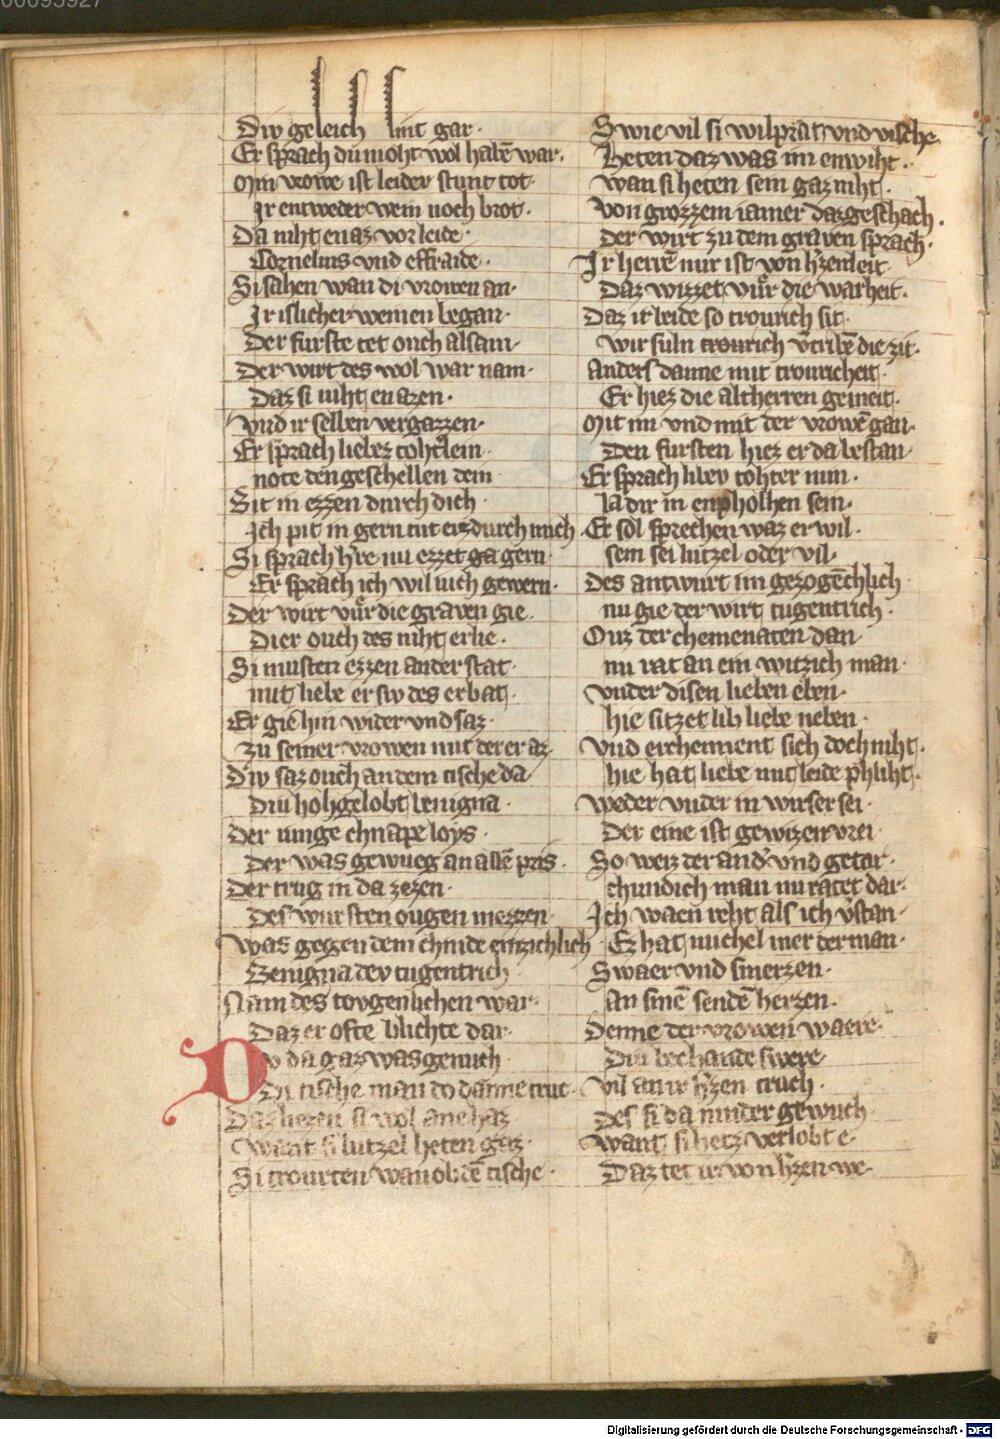 00095927
Div geleich smt gar·
Er sprach du moht wol habē war·
Min vrowe ist leider stunt tot·
Ir entweder wein noch brot·
Da niht en az vor leide·
Cornelius vnd effraide·
Si sahen wan di vrowen an·
Ir islicher weinen began·
Der furste tet ouch alsam·
Der wirt des wol war nam·
Daz si niht en azen·
Vnd ir selben vergazzen·
Er sprach liebez tohterlein
note den geschellen dein
Sit in ezzen durch dich
Ich pit in gern tut erz durch mich
Si sprach h're nu ezzet ga gern·
Er sprach ich wil iuch gewern·
Der wirt vuͤr die graven gie
Dier ouch des niht erlie·
Si musten ezzen ander stat·
mit liebe er siv des erbat·
Er gie hin wider vnd saz·
Zu seiner vrowen mit der er az·
Div saz ouch an dem tische da·
Diu hohgelobt benigna·
Der iunge chnape loys·
Der was gewueg an allē pris·
Der trug in da zezen·
Des wursten ougen mezzen·
Was gegen dem chinde einzichlich
Benigna dev tugentrich·
Nam des tovgenlichen war·
Daz er ofte blichte dar·
Do da gaz was genuch
Di tische man do danne truc·
Daz liezen si wol ane haz
Want si lutzel heten gaz·
Si trourten wan ob dē tische·
Swie vil si wilprat vnd vische
Heten daz was im enwiht·
wan si heten sein gaz niht·
Von grozzem iamer daz geschach·
Der wirt zu dem graven sprach·
Ir herrē mir ist von h'zen leit
Daz wizzet vuͤr die warheit·
Daz ir leide so trourich sit·
wir suln trourich v'tribē die zit·
Anders danne mit trouricheit·
Er hiez die altherren gemeit·
Mit im vnd mit der vrowē gan·
Den fursten hiez er da bestan·
Er sprach libev tohter min·
La dir in enpholhen sein·
Er sol sprechen waz er wil·
sein sei lutzel oder vil·
Des antwurt im gezogēchlich
nu gie der wirt tugentrich·
Ouz der chemenaten dan
nu rat an ein witzich man·
Vnder disen lieben eben·
hie sitzet lib liebe neben·
Vnd erchennent sich doch niht·
hie hat liebe mit leide phliht·
Weder vnder in wirser sei·
Der eine ist gewizen vrei·
So weiz der and' vnd getar·
chundich man nu ratet dar·
Ich waen reht als ich v'stan·
Ez hat michel mer der man·
Swaer vnd smerzen·
An sinē sendē herzen·
Denne der vrowen waere·
Diu bechande swere
Vil an ir h'zen truch·
Des si da minder gewuch·
Want si hetz verlobt e·
Daz tet ir von h'zen we·
Digitalisierung gefördert durch die Deutsche Forschungsgemeinschaft - DFG